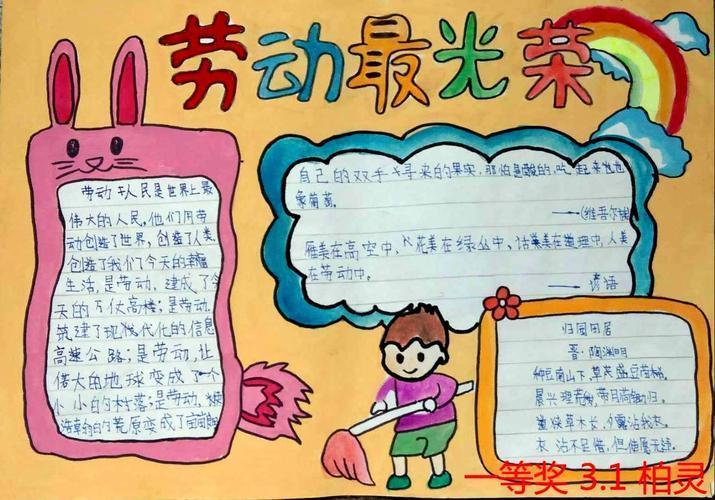 劳动最光荣
劳动人民是世界上最
伟大的人民,他们用劳
动创造了世界,创造了人类,
创造了我们今天的幸福
生活,是劳动,建成了今
天的万丈高楼;是劳动,
筑建了现代化的信息
高速公路;是劳动,让
偌大的地球变成了一个
小小的村落;是劳动,使
荒原变成了
自己的双手寻来的果实,那怕是酸的,吃起来也
象葡萄。
——(维吾尔族)
雁美在高空中,花美在绿丛中,话美在道理中,人美
在劳动中。
——谚语
归园田居
晋·陶渊明
种豆南山下,草盛豆苗稀。
晨兴理荒秽,带月荷锄归。
道狭草木长,夕露沾我衣。
衣沾不足惜,但使愿无违。
一等奖 3.1 柏灵